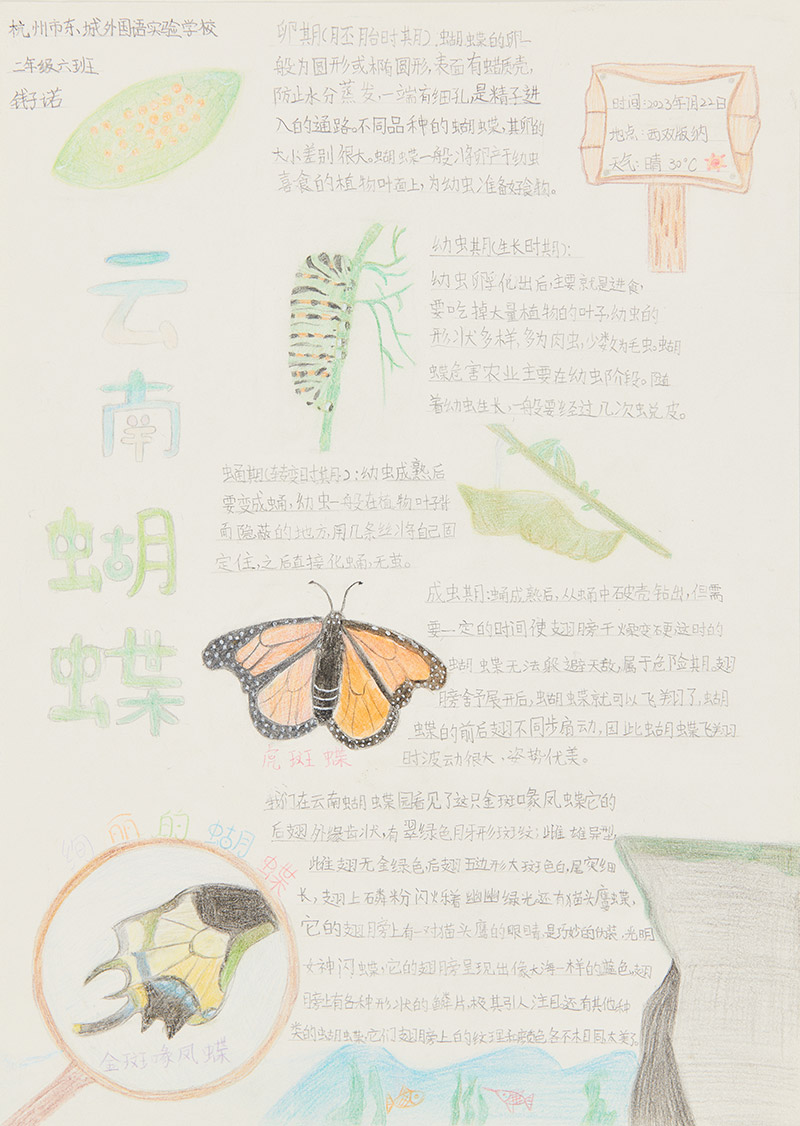 杭州市东城外国语实验学校
二年级六班
钱子诺
卵期(胚胎时期).蝴蝶的卵一
般为圆形或椭圆形,表面有蜡质壳,
防止水分蒸发,一端有细孔,是精子进
入的通路。不同品种的蝴蝶,其卵的
大小差别很大。蝴蝶一般将卵产于幼虫
喜食的植物叶面上,为幼虫准备好食物。
时间:2023年1月22日
地点:西双版纳
天气:晴 30°C
云南
蝴蝶
幼虫期(生长时期):
幼虫孵化出后,主要就是进食,
要吃掉大量植物的叶子,幼虫的
形状多样,多为肉虫,少数为毛虫。蝴
蝶危害农业主要在幼虫阶段。随
着幼虫生长,一般要经过几次蜕皮。
蛹期(转变时期):幼虫成熟后
要变成蛹,幼虫一般在植物叶子背
面隐蔽的地方,用几条丝将自己固
定住,之后直接化蛹,无茧。
成虫期:蛹成熟后,从蛹中破壳钻出,但需
要一定的时间使翅膀干燥变硬这时的
蝴蝶无法躲避天敌,属于危险期.翅
膀舍予展开后,蝴蝶就可以飞翔了,蝴
蝶的前后翅不同步扇动,因此蝴蝶飞翔
时波动很大,姿势优美。
虎斑蝶
我们在云南蝴蝶园看见了这只金斑喙凤蝶它的
后翅外缘齿状,有翠绿色月牙形斑纹;雌雄异型,
雌翅无金绿色,后翅五边形大斑色白,尾突细
长,翅上磷粉闪烁着幽幽绿光还有猫头鹰蝶,
它的翅膀上有一对猫头鹰的眼睛,是巧妙的伪装.光明
女神闪蝶,它的翅膀呈现出像大海一样的蓝色.翅
膀上有各种形状的鳞片,极其引人注目还有其他种
类的蝴蝶,它们翅膀上的纹理和颜色各不相同,太美了
绚丽的蝴蝶
金斑喙凤蝶